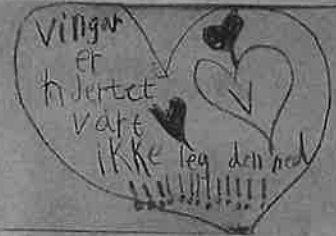 Vingar
er
hjertet
vårt
ikke leg den ned
V
!!!!!!!!!!!!